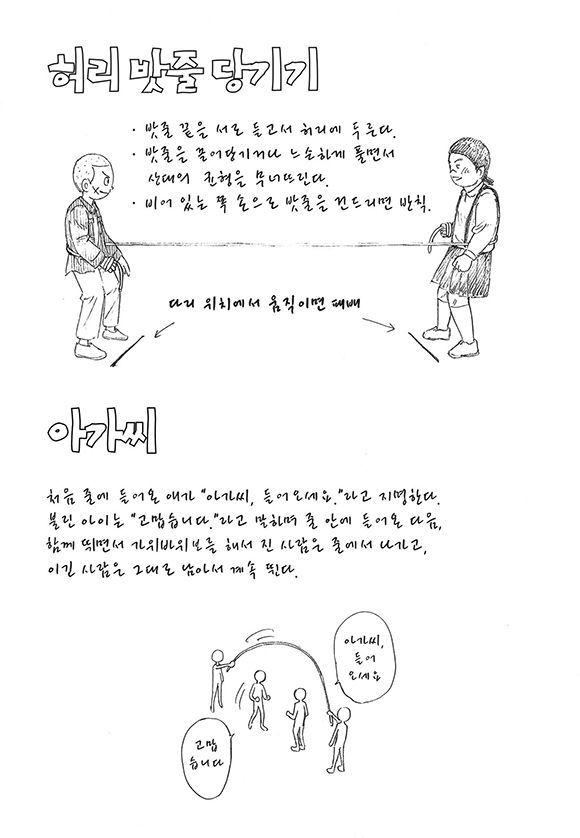 허리 밧줄 당기기
· 밧줄 끝을 서로 들고서 허리에 두른다.
· 밧줄을 끌어당기거나 느슨하게 풀면서
상대의 균형을 무너뜨린다.
· 비어 있는 쪽 손으로 밧줄을 건드리면 반칙.
다리 위치에서 움직이면 패배
아가씨
처음 줄에 들어온 애가 "아가씨, 들어오세요."라고 지명한다.
불린 아이는 "고맙습니다."라고 말하며 줄 안에 들어온 다음,
함께 뛰면서 가위바위보를 해서 진 사람은 줄에서 나가고,
이긴 사람은 그대로 남아서 계속 뛴다.
아가씨,
들어
오세요
고맙
습니다